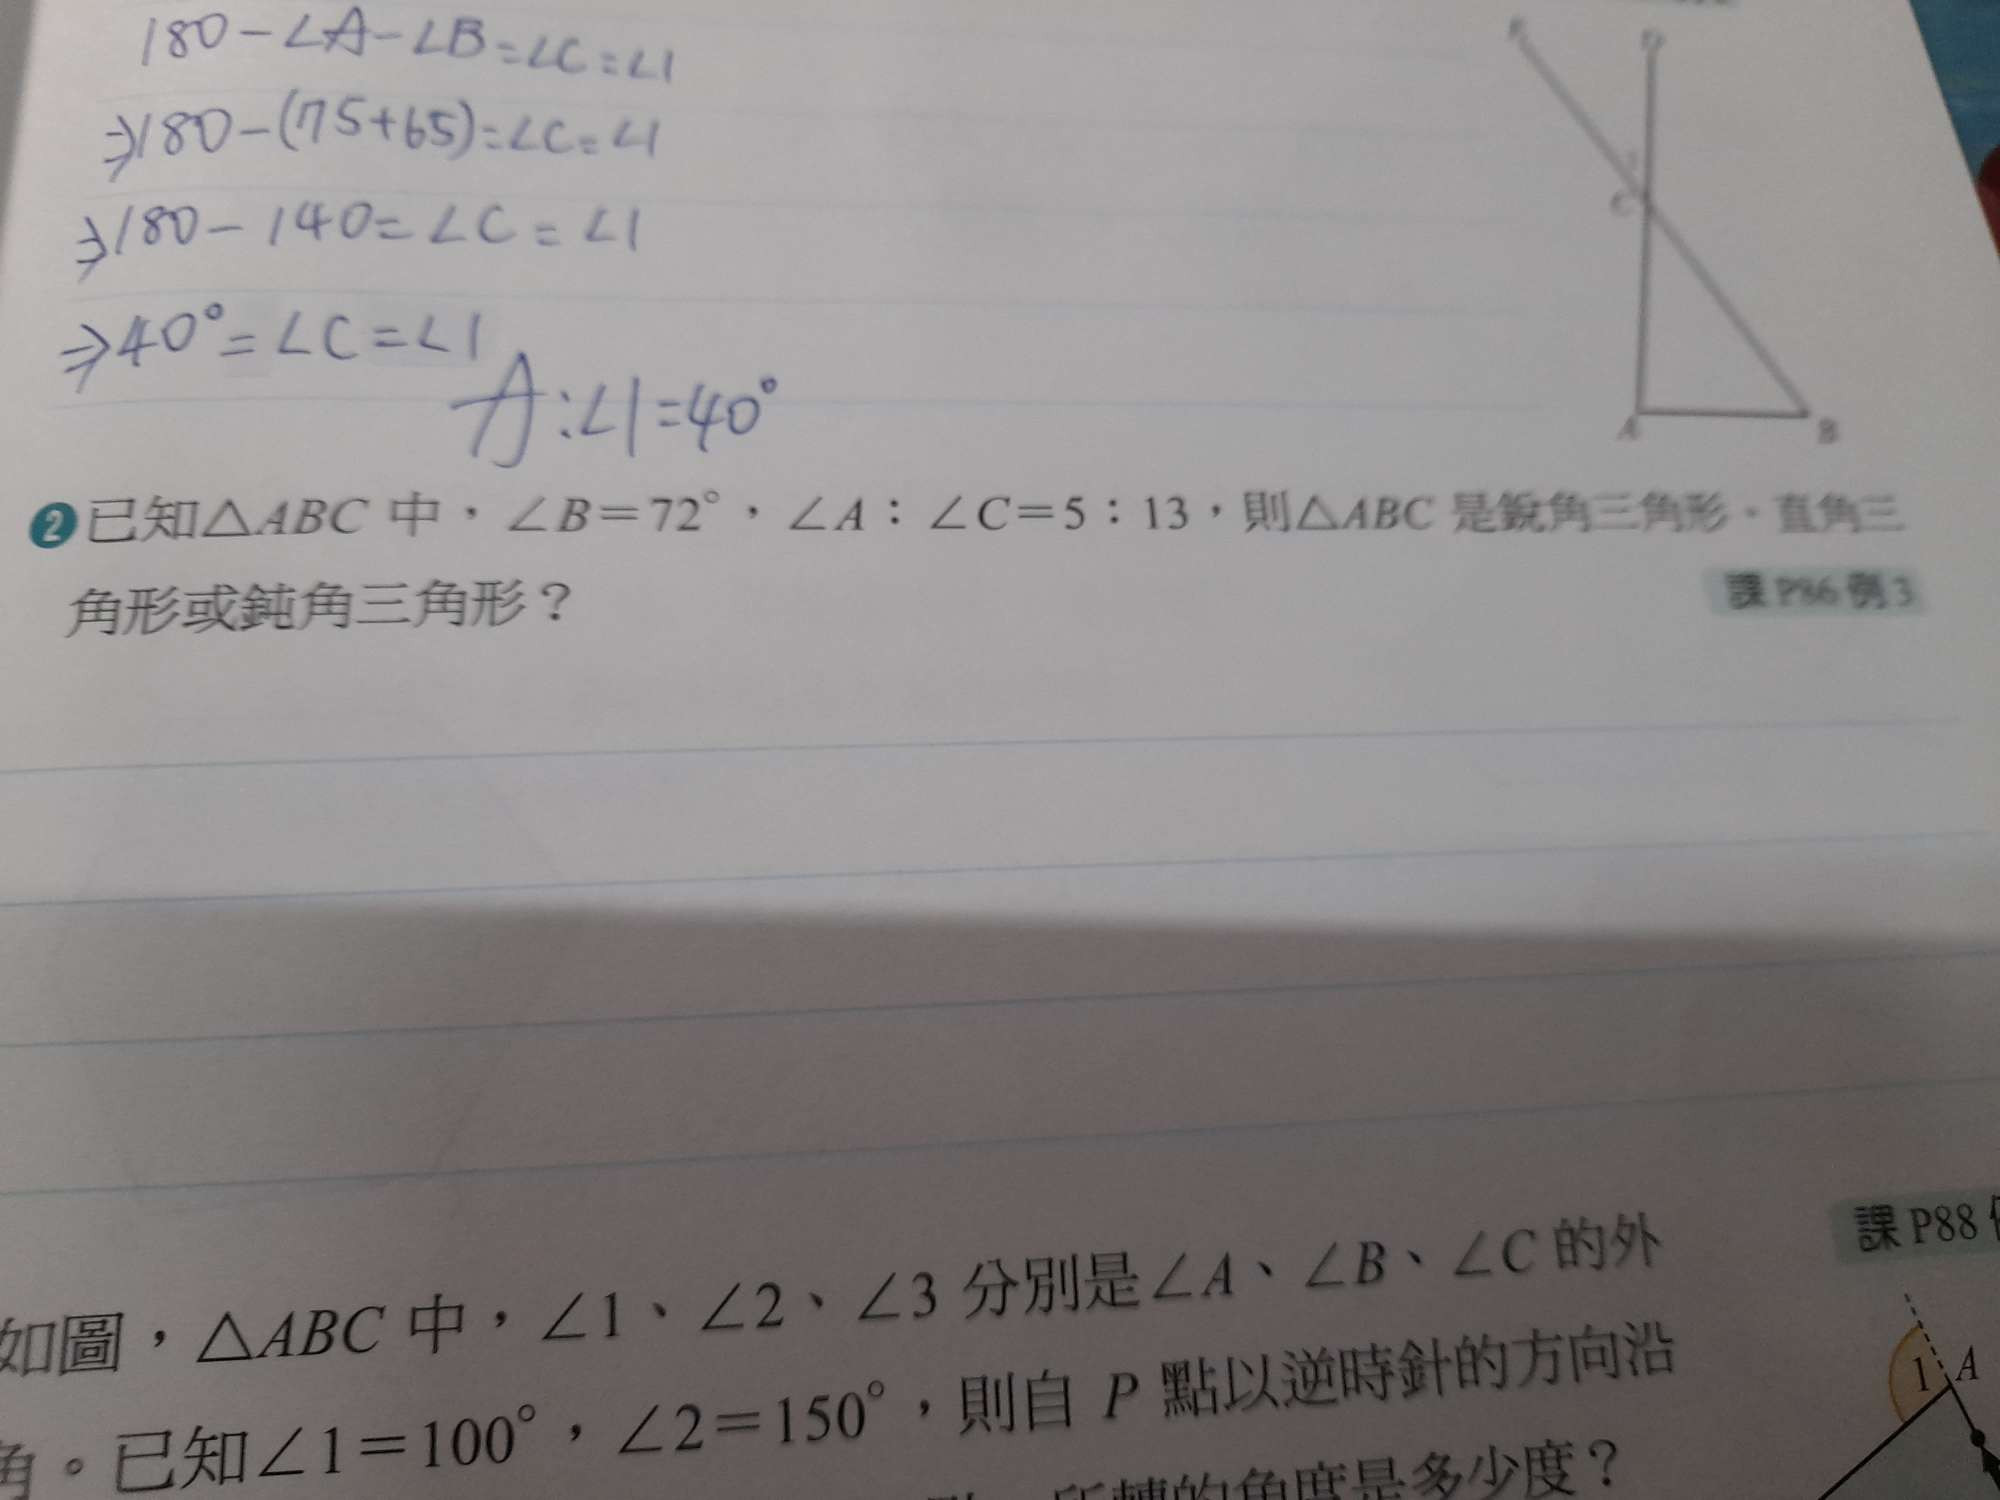 180-∠A-∠B=∠C=∠1
⇒180-(75+65)=∠C=∠1
⇒180-140=∠C=∠1
⇒40°=∠C=∠1
A:∠1=40°
C
A
B
2 已知△ABC 中，∠B=72°，∠A：∠C=5：13，則△ABC 是銳角三角形、直角三
角形或鈍角三角形？
課 P86 例 3
課 P88
如圖，△ABC 中，∠1、∠2、∠3 分別是∠A、∠B、∠C 的外
角。已知∠1=100°，∠2=150°，則自 P 點以逆時針的方向沿
所轉的角度是多少度？
1
A